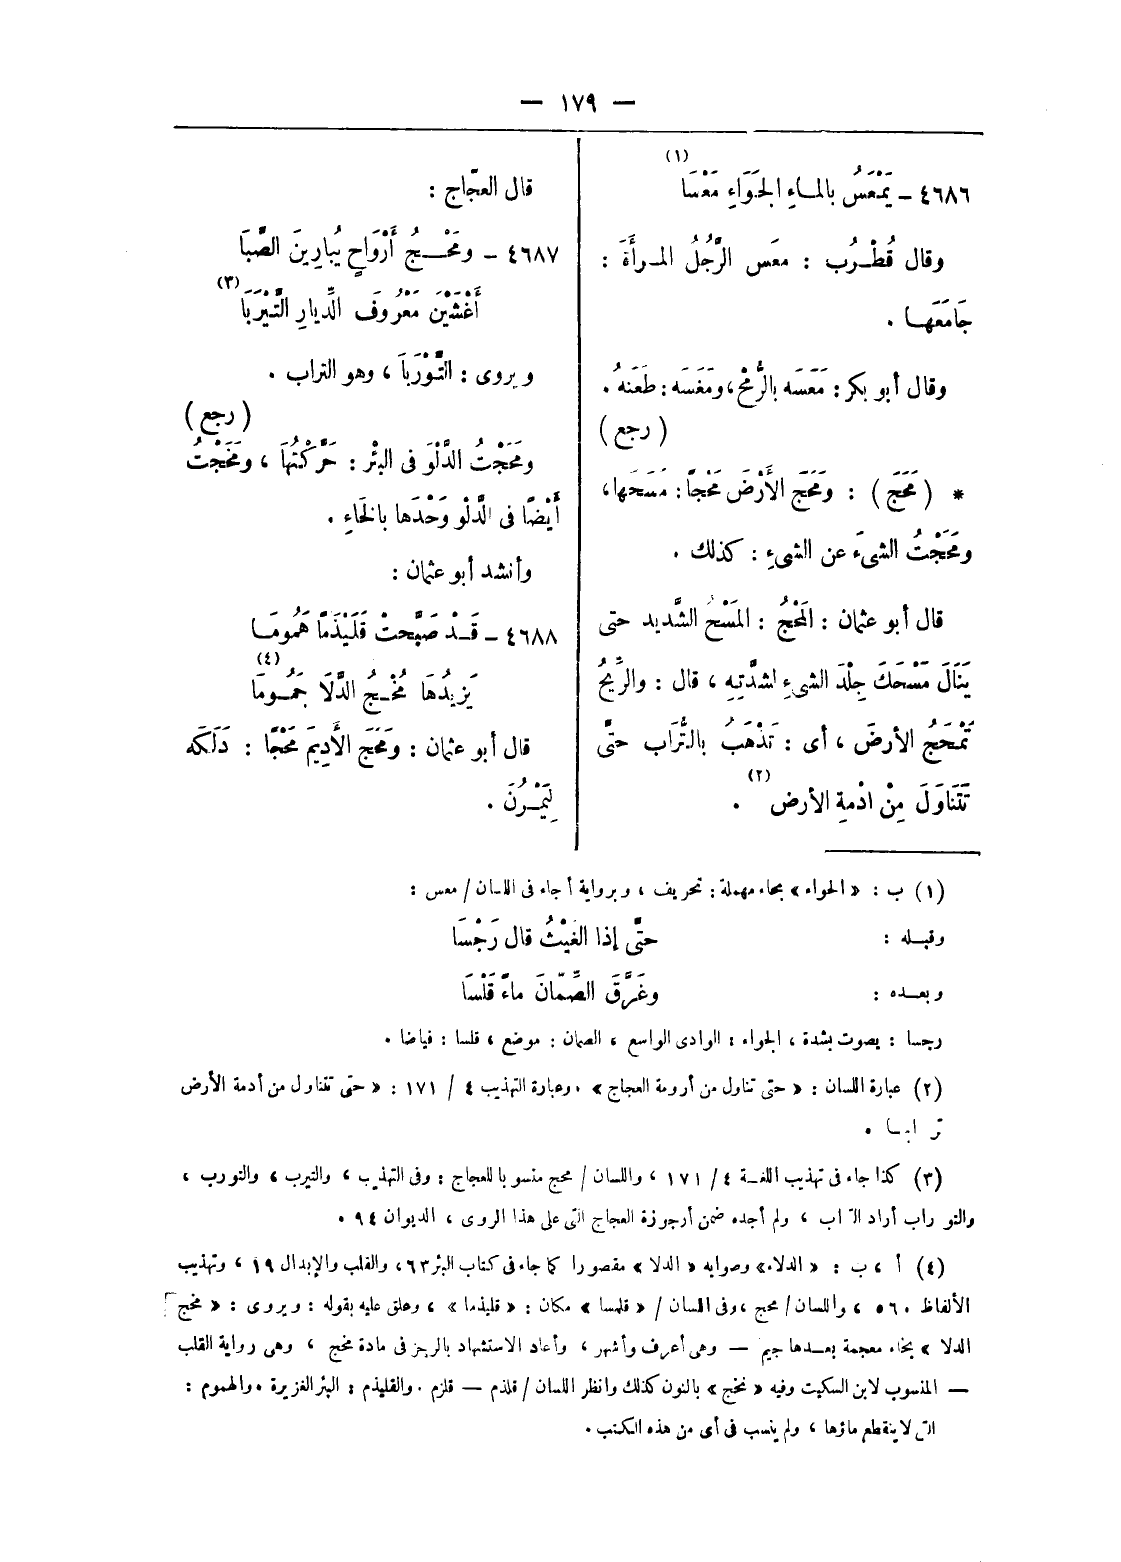 — ١٧٩ —
٤٦٨٦ – يَمْعَسُ بالمـاءِ الجَوَاءِ مَعْسَا (١)
وقال قُطْـرُب : معَس الرَّجُلُ المـرأةَ :
جَامَعَهـا .
وقال أبو بكر : مَعَسَه بالرُّمْحِ، ومَغَسَه : طَعَنهُ .
( رجع )
* ( مَحَج ) : ومَحَج الأَرْضَ مَحْجاً : مَسَحَها،
ومَحَجْتُ الشىءَ عن الشىءِ : كذلك .
قال أبو عثمان : المَحْجُ : المَسْحُ الشَّديد حتى
يَنَالَ مَسْحَكَ جِلْدَ الشىءِ لشدَّتِهِ ، قال : والرِّيحُ
تَمْحَجُ الأرضَ ، أى : تَذْهَبُ بالتُّرَاب حتَّى
تَتَنَاوَلَ مِنْ ادْمةِ الأرض (٢) .
قال العجّاج :
٤٦٨٧ – ومَحْـجُ أَرْوَاحٍ يُبارِينَ الصَّبَا
أَغْشَيْنَ مَعْرُوفَ الدِّيارِ التَّيْرَبَا (٣)
ويروى : التَّوْرَبَا ، وهو التراب .
( رجع )
ومَحَجْتُ الدَّلْوَ فى البئْر : حَرَّكْتُهَا ، ومَخَجْتُ
أَيْضًا فى الدَّلْو وَحْدَها بالخَاءِ .
وأنشد أبو عثمان :
٤٦٨٨ – قَـدْ صَبَّحتْ قَلَيْذَمًا هَمُومَـا
يَزيدُهَا مَخْـجُ الدَّلَا جَمُـومَا (٤)
قال أبو عثمان : ومَحَجَ الأَدِيمَ مَحْجًا : دَلَكَه
لِيَمْـرُنَ .
(١) ب : « الحواء » بحاء مهملة : تحريف ، وبرواية أ جاء فى اللسان / معس :
وقبـله : حتَّى إذا الغَيْثُ قال رَجْسَا
وبعـده : وغَرَّقَ الصِّمّانَ ماءً قَلْسَا
رجسا : يصوت بشدة ، الجواء : الوادى الواسع ، الصمان : موضع ، قلسا : فياضا .
(٢) عبارة اللسان : « حتى تناول من أرومة العجاج » . وعبارة التهذيب ٤ / ١٧١ : « حتى تتناول من أدمة الأرض
ترابهـا .
(٣) كذا جاء فى تهذيب اللغـة ٤ / ١٧١ ، واللسان / محج منسوبا للعجاج : وفى التهذيب ، والتيرب ، والتورب ،
والتوراب أراد التراب ، ولم أجده ضمن أرجوزة العجاج التى على هذا الروى ، الديوان ٩٤ .
(٤) أ ، ب : « الدلاء » وصوابه « الدلا » مقصورا كما جاء فى كتاب البئر ٦٣ ، والقلب والإبدال ١٩ ، وتهذيب
الألفاظ ٥٦٠ ، واللسان / محج ، وفى اللسان / « قلمسا » مكان : « قليذما » ، وعلق عليه بقوله : ويروى : « مخج
الدلا » بخاء معجمة بعـدها جيم — وهى أعرف وأشهر ، وأعاد الاستشهاد بالرجز فى مادة مخج ، وهى رواية القلب
— المنسوب لابن السكيت وفيه « نخج » بالنون كذلك وانظر اللسان / قلذم — قلزم . والقليذم : البئر الغزيرة . والهموم :
التى لا ينقطع ماؤها ، ولم ينسب فى أى من هذه الكتب .